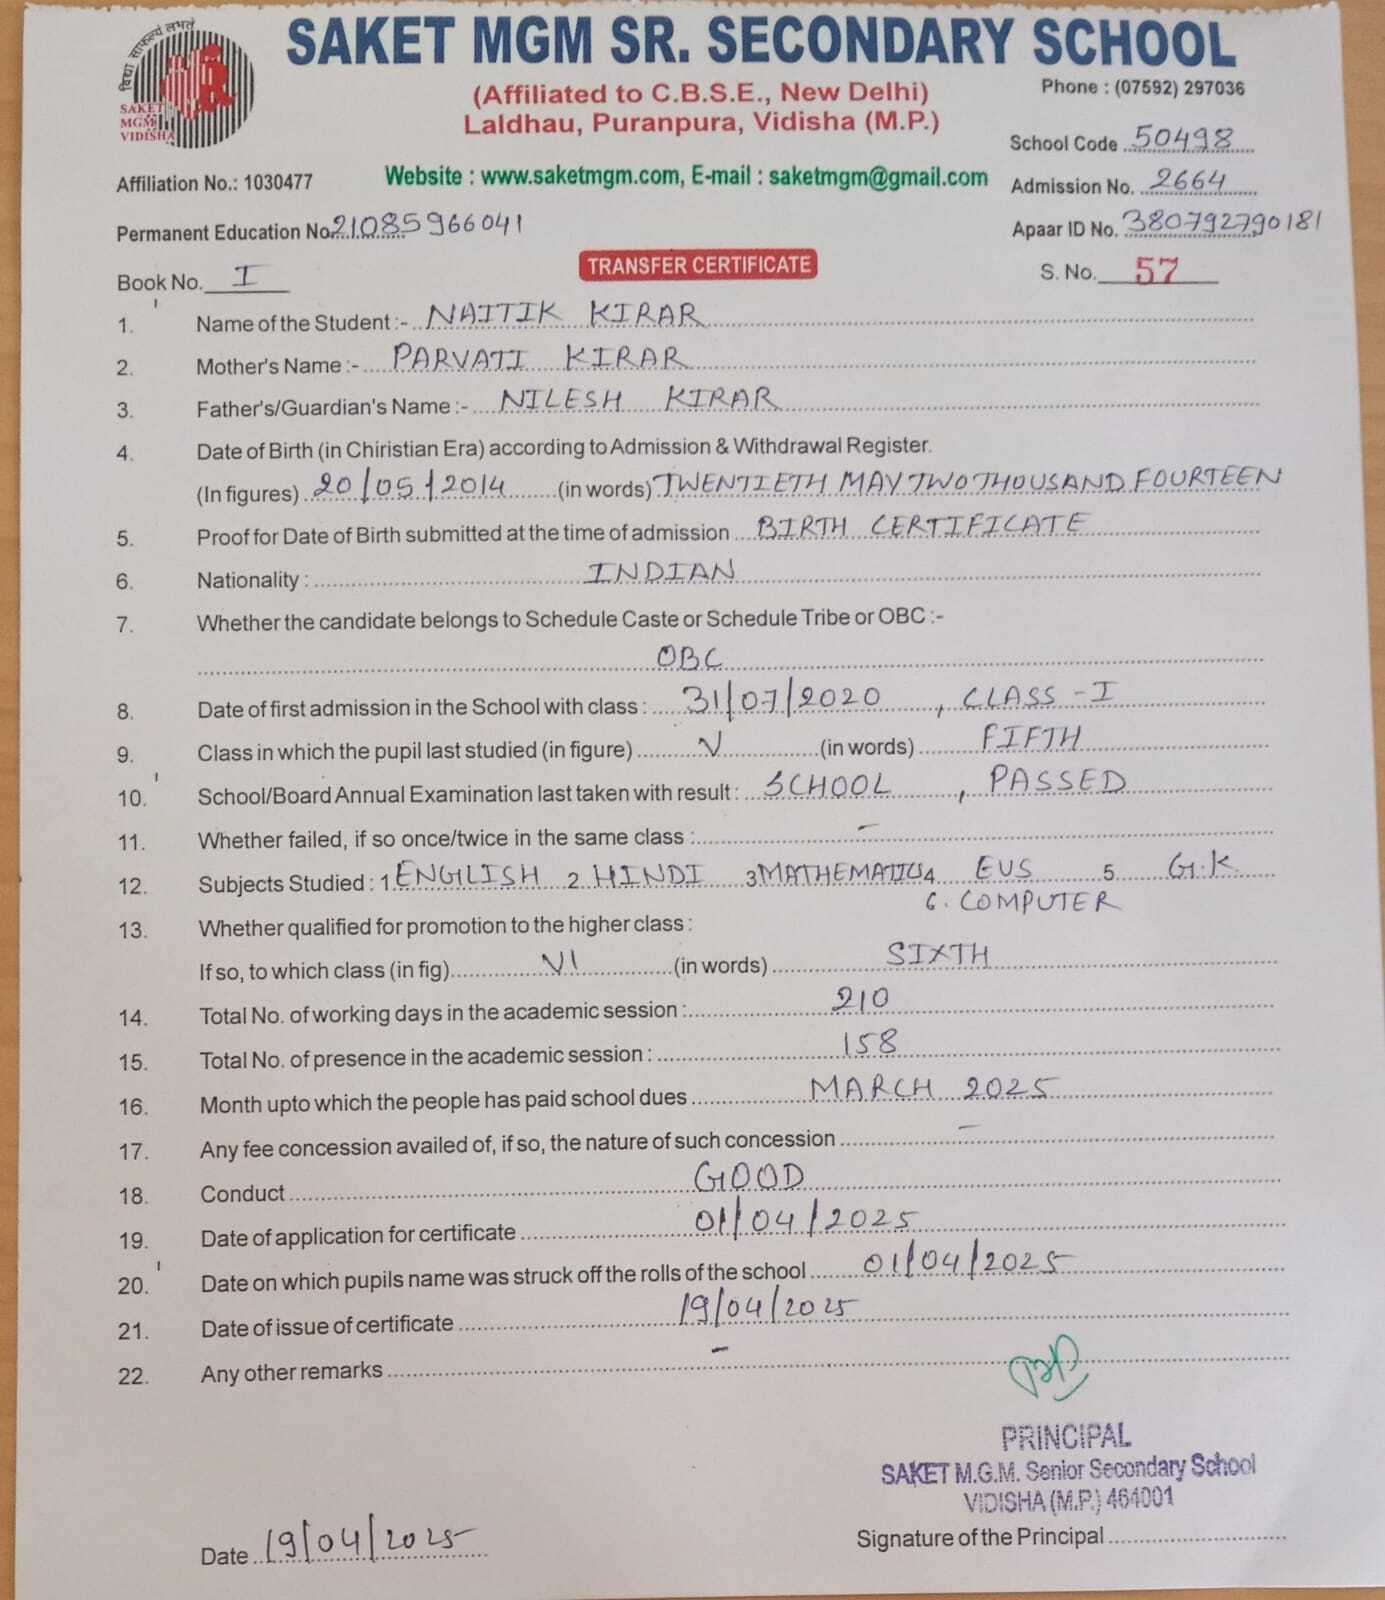 विद्या साफल्यं लभते
SAKET
MGM
VIDISHA
SAKET MGM SR. SECONDARY SCHOOL
(Affiliated to C.B.S.E., New Delhi)
Phone : (07592) 297036
Laldhau, Puranpura, Vidisha (M.P.)
School Code 50498
Affiliation No.: 1030477 Website : www.saketmgm.com, E-mail : saketmgm@gmail.com Admission No. 2664
Permanent Education No. 21085966041 Apaar ID No. 380792790181
Book No. I TRANSFER CERTIFICATE S. No. 57
1. Name of the Student :- NAITIK KIRAR
2. Mother's Name :- PARVATI KIRAR
3. Father's/Guardian's Name :- NILESH KIRAR
4. Date of Birth (in Chiristian Era) according to Admission & Withdrawal Register.
(In figures) 20/05/2014 (in words) TWENTIETH MAY TWO THOUSAND FOURTEEN
5. Proof for Date of Birth submitted at the time of admission BIRTH CERTIFICATE
6. Nationality : INDIAN
7. Whether the candidate belongs to Schedule Caste or Schedule Tribe or OBC :-
OBC
8. Date of first admission in the School with class : 31/07/2020, CLASS - I
9. Class in which the pupil last studied (in figure) V (in words) FIFTH
10. School/Board Annual Examination last taken with result : SCHOOL, PASSED
11. Whether failed, if so once/twice in the same class : -
12. Subjects Studied : 1 ENGLISH 2 HINDI 3 MATHEMATICS 4 EVS 5 G.K.
6. COMPUTER
13. Whether qualified for promotion to the higher class :
If so, to which class (in fig) VI (in words) SIXTH
14. Total No. of working days in the academic session : 210
15. Total No. of presence in the academic session : 158
16. Month upto which the people has paid school dues MARCH 2025
17. Any fee concession availed of, if so, the nature of such concession -
18. Conduct GOOD
19. Date of application for certificate 01/04/2025
20. Date on which pupils name was struck off the rolls of the school 01/04/2025
21. Date of issue of certificate 19/04/2025
22. Any other remarks -
PRINCIPAL
SAKET M.G.M. Senior Secondary School
VIDISHA (M.P.) 464001
Signature of the Principal
Date 19/04/2025